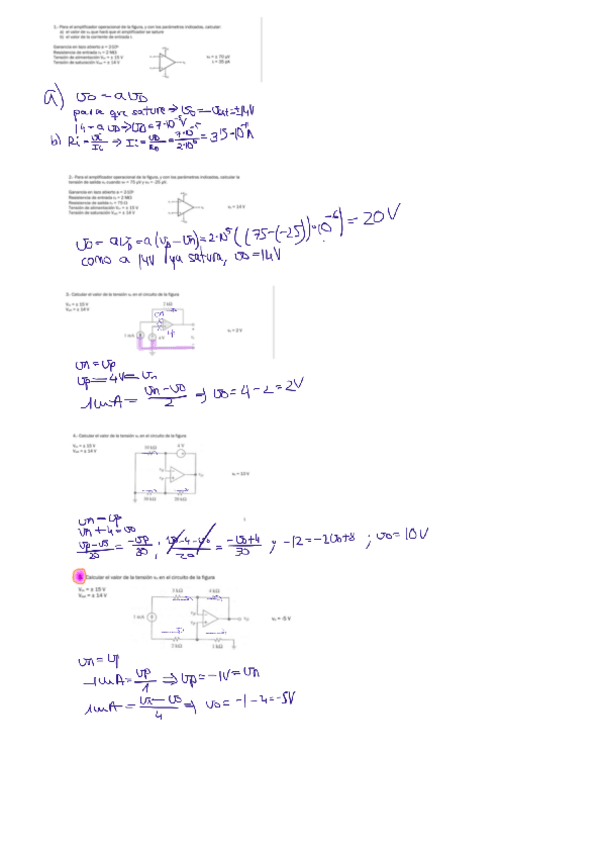 1.- Para el amplificador operacional de la figura, y con los parámetros indicados, calcular:
a) el valor de vd que hará que el amplificador se sature
b) el valor de la corriente de entrada i
Ganancia en lazo abierto a = 2·10⁵
Resistencia de entrada ri = 2 MΩ
Tensión de alimentación Vcc = ± 15 V
Tensión de saturación Vsat = ± 14 V
vd = ± 70 µV
i = 35 pA
a) vo = a vD
para que sature → vo = Vsat = ±14V
14 = a vD → vD = 7·10⁻⁵ V
b) Ri =
2.- Para el amplificador operacional de la figura, y con los parámetros indicados, calcular la
tensión de salida vo cuando vp = 75 µV y vn = -25 µV.
Ganancia en lazo abierto a = 2·10⁵
Resistencia de entrada ri = 2 MΩ
Resistencia de salida ro = 75 Ω
Tensión de alimentación Vcc = ± 15 V
Tensión de saturación Vsat = ± 14 V
vo = 14 V
vo = a vD = a (vp - vn) = 2·10⁵ ((75-(-25))·10⁻⁶) = 20 V
como a 14V ya satura, vo = 14V
3.- Calcular el valor de la tensión vo en el circuito de la figura
Vcc = ± 15 V
Vsat = ± 14 V
2 kΩ
1 mA
vo = 2 V
vn = vp
vp = 4V = vn
1mA = (vn - vo)/2 ⇒ vo = 4 - 2 = 2V
4.- Calcular el valor de la tensión vo en el circuito de la figura
Vcc = ± 15 V
Vsat = ± 14 V
4 V
vo = 10 V
vn = vp
vn + 4 = vo
; -12 = -2vo + 8 ; vo = 10V
5 Calcular el valor de la tensión vo en el circuito de la figura
Vcc = ± 15 V
Vsat = ± 14 V
1 mA
vo = -5 V
vn = vp
-1mA = vp/1 ⇒ vp = -1V = vn
1mA = (vn - vo)/4 ⇒ vo = -1 - 4 = -5V